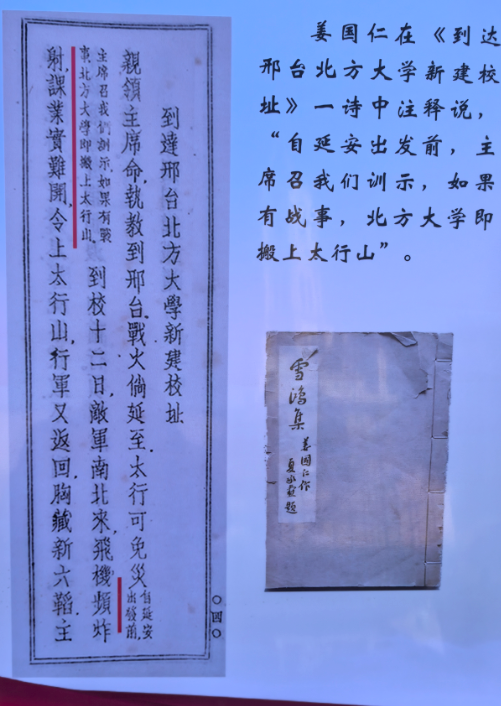 到達邢台北方大學新建校址
親領主席命,執教到邢台,戰火倘延至,太行可免災,
自延安
出發前,
主席召我們訓示如果有戰
事,北方大學即搬上太行山,
到校十二日,敵軍南北來,飛機頻炸
射,課業實難開,令上太行山,行軍又返回,胸藏新六韜,主
〇四〇
姜国仁在《到达
邢台北方大学新建校
址》一诗中注释说，
“自延安出发前，主
席召我们训示，如果
有战事，北方大学即
搬上太行山”。
雪鴻集
姜國仁作
夏 題